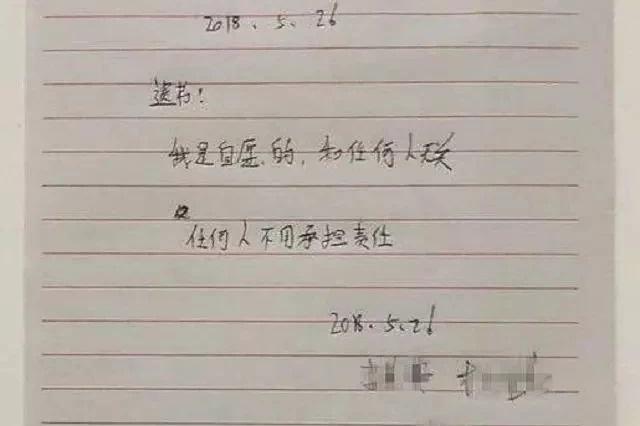 2018.5.26
遗书：
我是自愿的，和任何人无关
任何人不用承担责任
2018.5.26